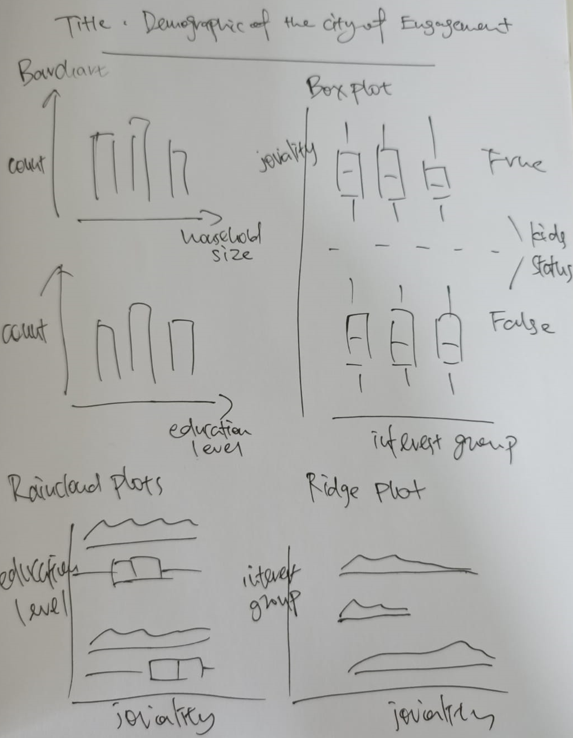 Title . Demographic of the city of Engagement
Barchart
count
household
size
count
education
level
Box plot
joviality
True
kids
status
False
interest group
Raincloud plots
education
level
joviality
Ridge plot
interest
group
joviality